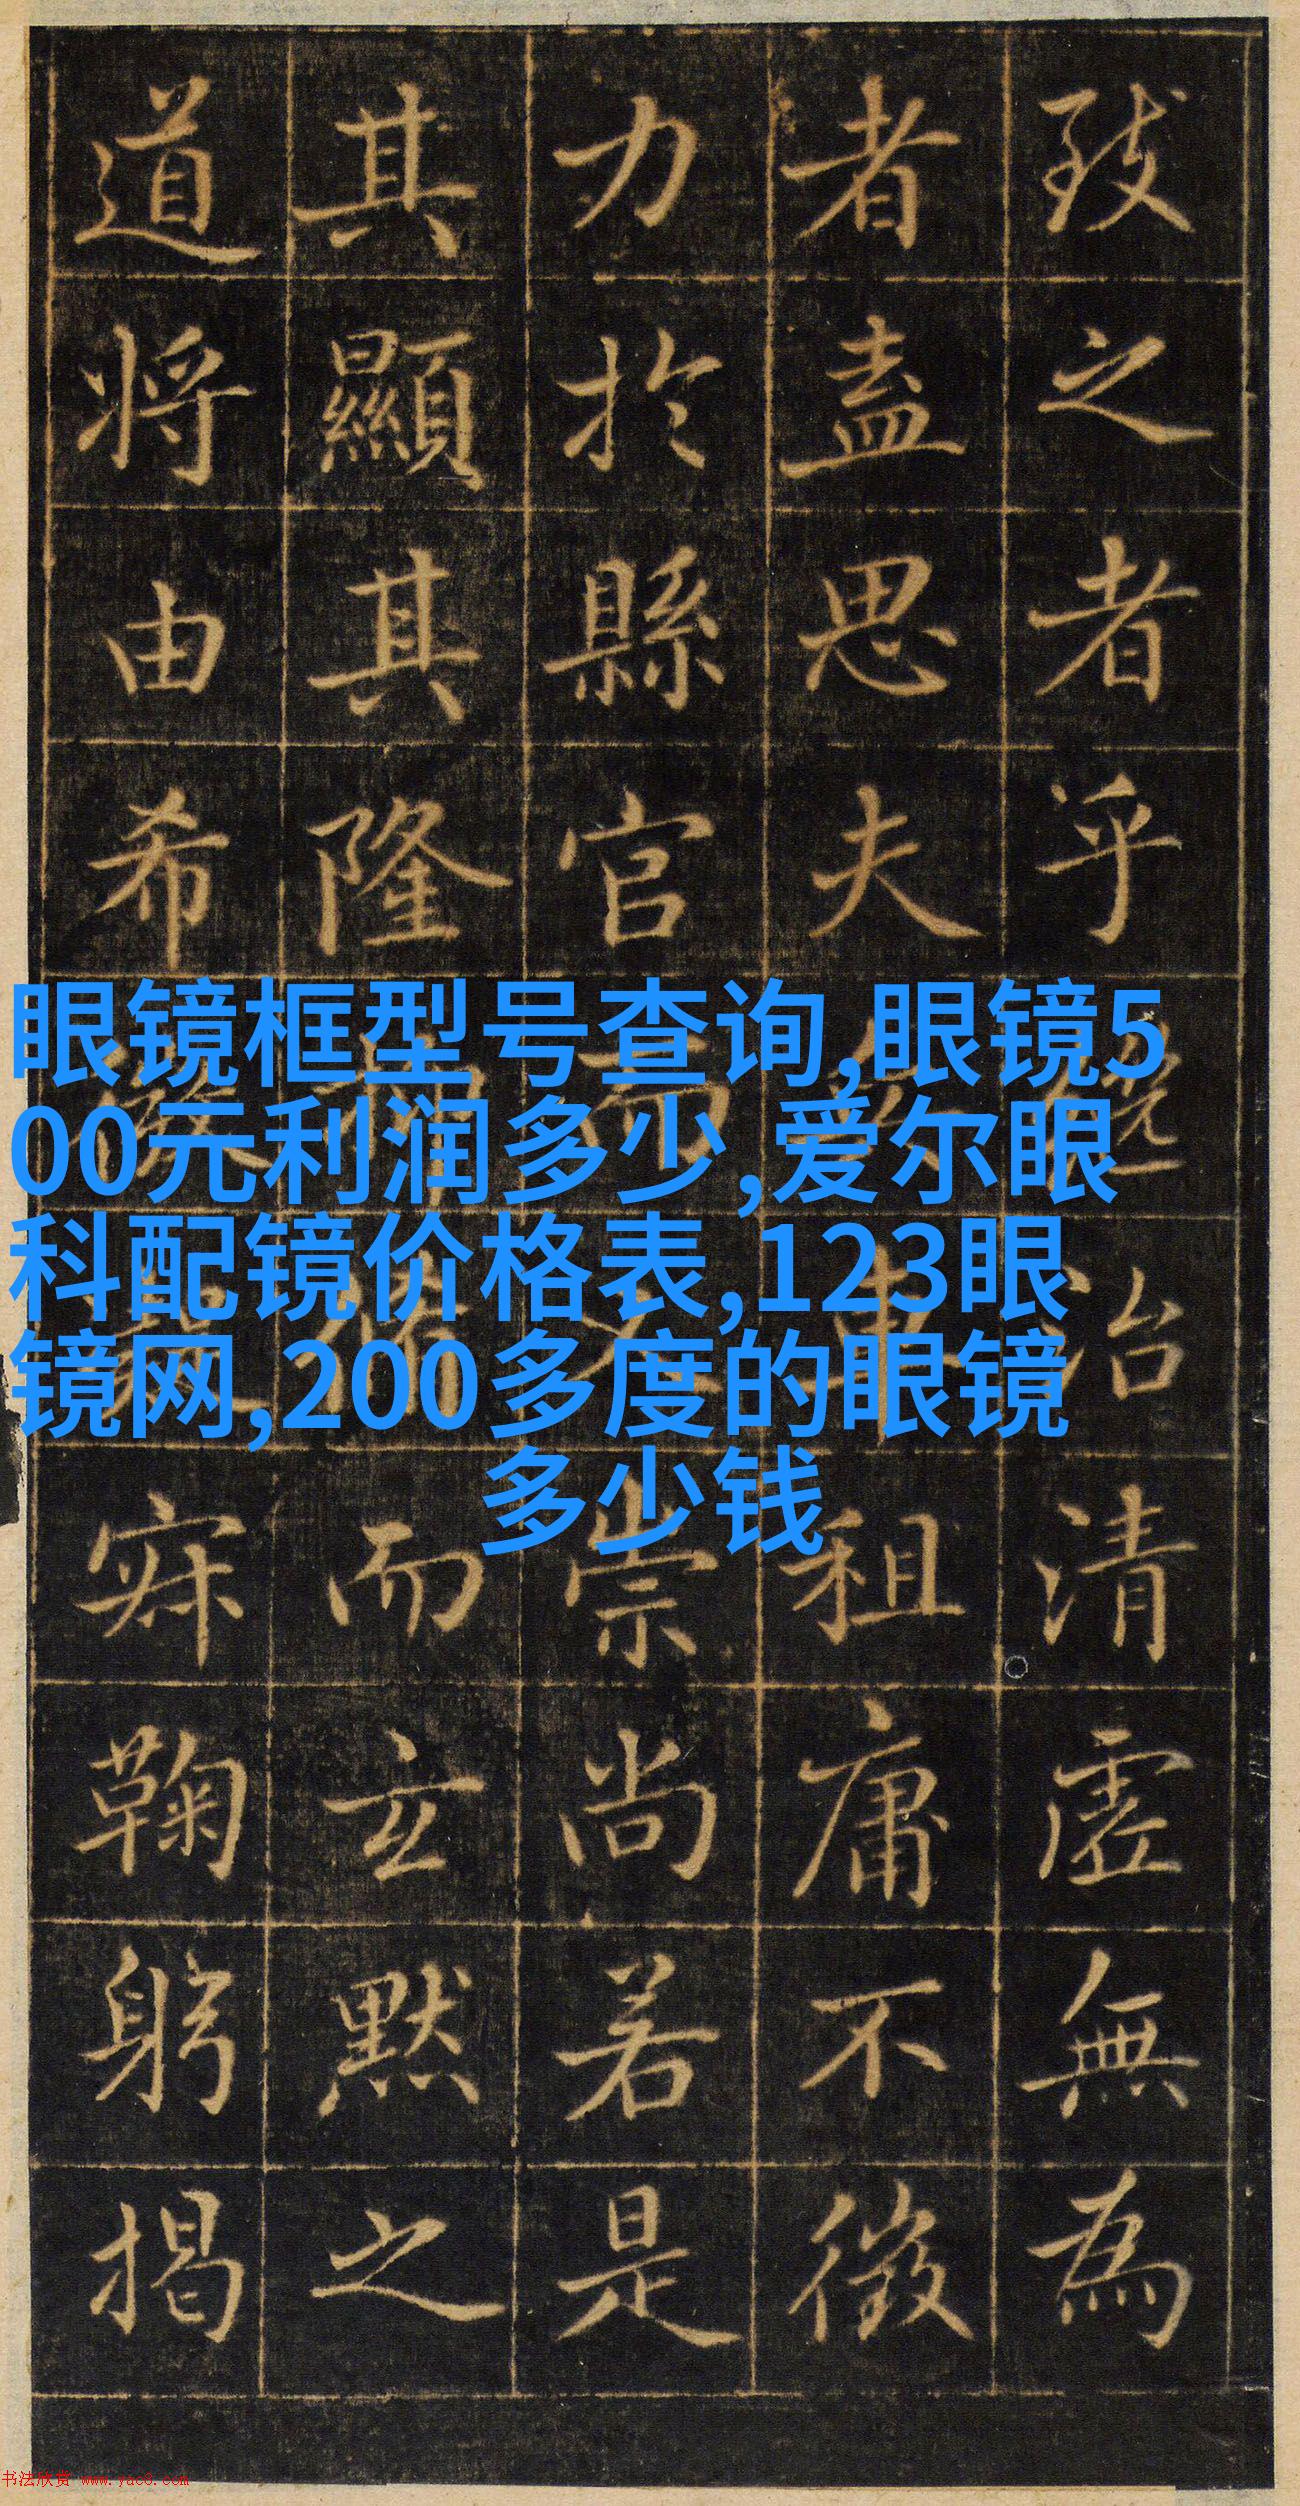 致之者乎治清虛無為
者盍思夫租庸不徵
力於縣官而崇尚若是
其顯其隆而玄默之
道将由希寂鞠躬揭
眼镜框型号查询,眼镜5
00元利润多少,爱尔眼
科配镜价格表,123眼
镜网,200多度的眼镜
多少钱
书法欣赏 www.yac8.com